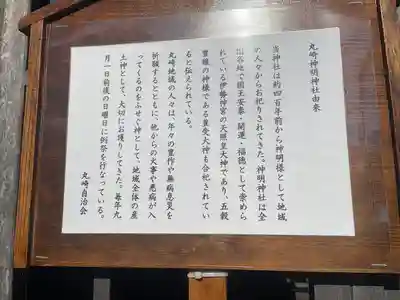 丸崎神明神社由来
当神社は約四百年前から神明様として地域
の人々からお祀りされてきた。神明神社は全
国各地で国王安泰・開運・福徳として崇めら
れている伊勢神宮の天照皇大神であり、五穀
豊穣の神様である豊受大神も合祀されてい
ると伝えられている。
丸崎地域の人々は、年々の豊作や無病息災を
祈願するとともに、他からの火事や悪病が入
ってくるのをふせぐ神として、地域全体の産
土神として、大切にお護りしてきた。毎年九
月一日前後の日曜日に例祭を行なっている。
丸崎自治会